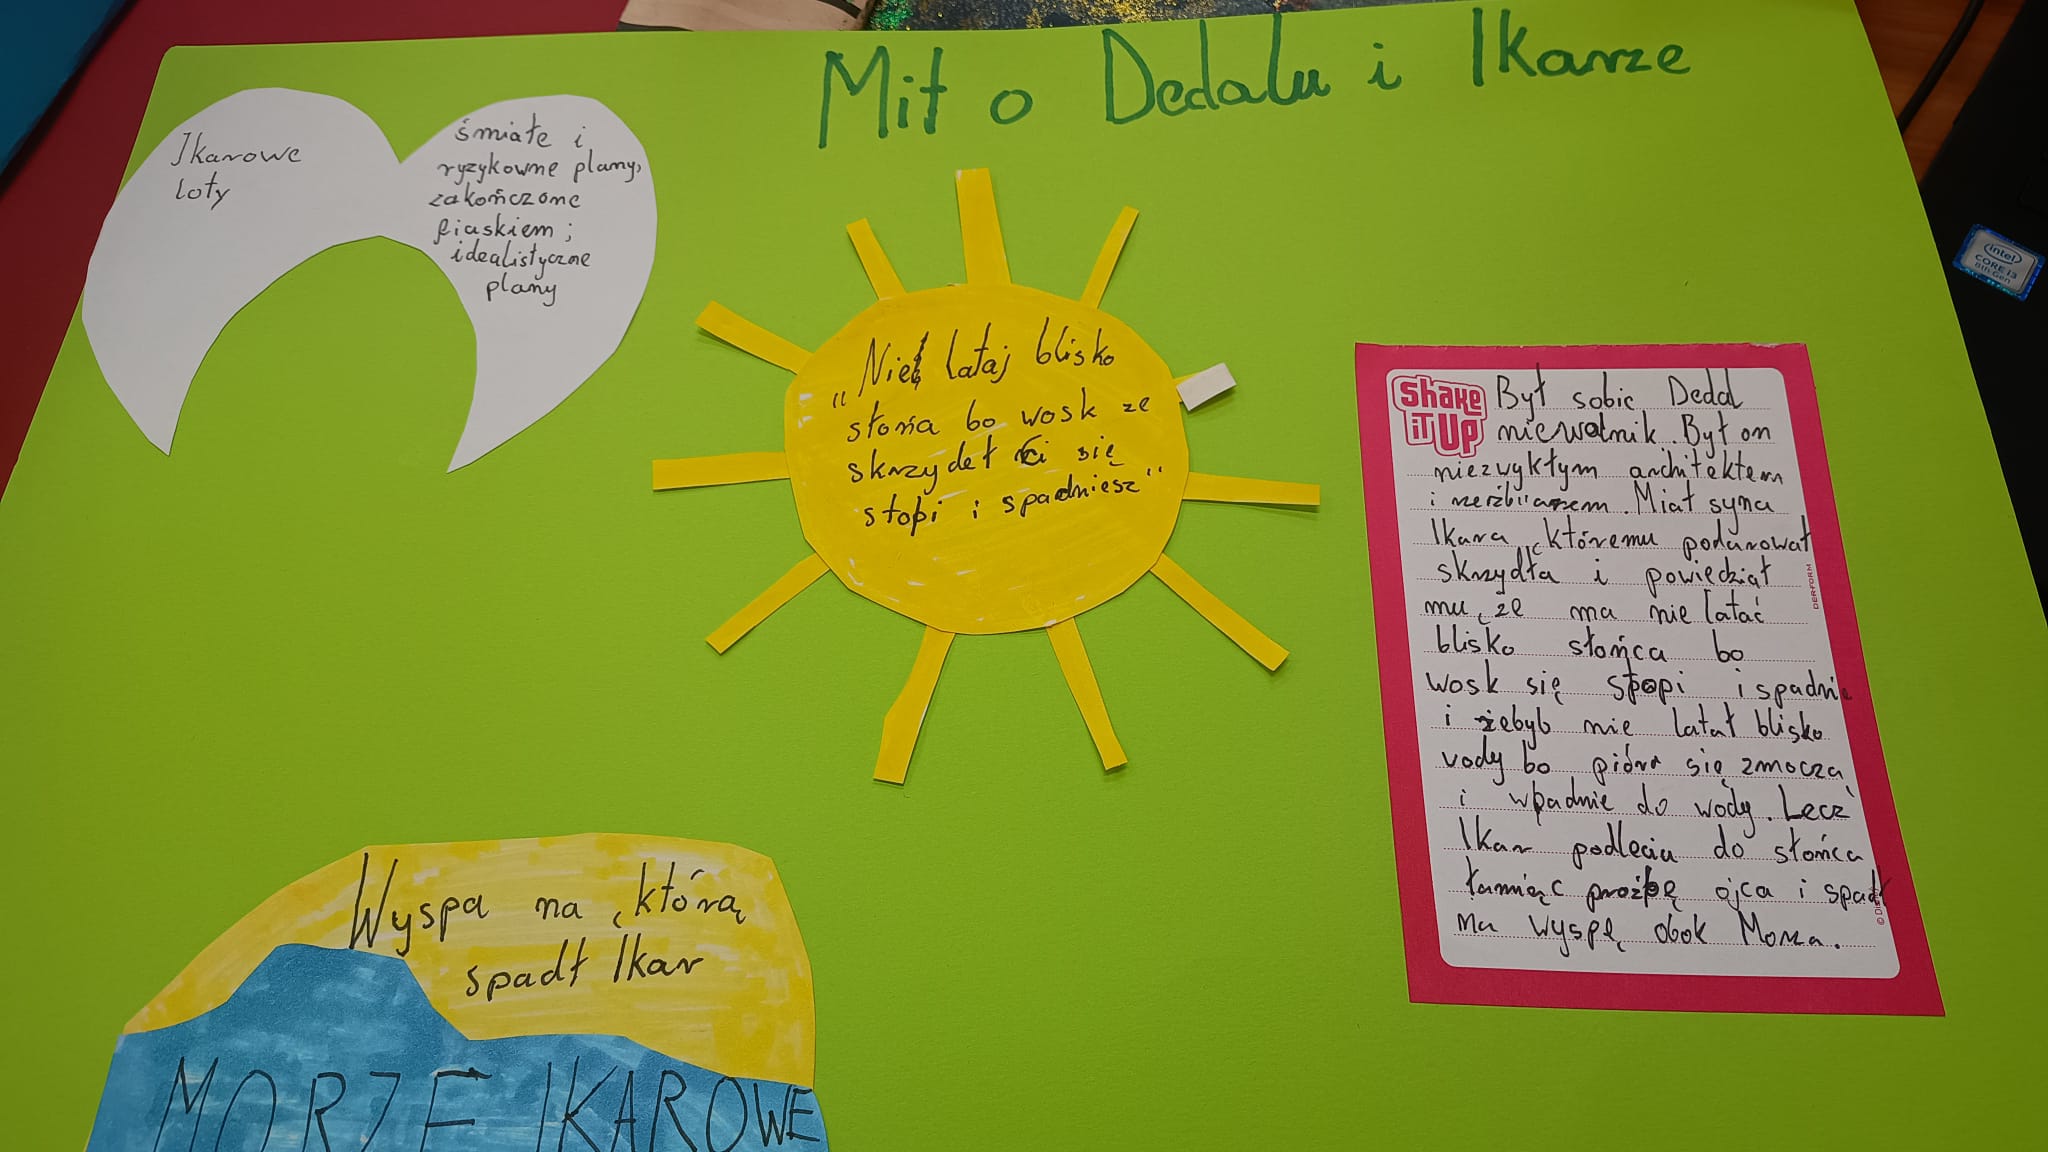 Mit o Dedalu i Ikarze
Ikarowe
loty
śmiałe i
ryzykowne plany,
zakończone
fiaskiem;
idealistyczne
plany
„Nie lataj blisko
słońa bo wosk ze
skrzydeł ci się
stopi i spadniesz"
Shake
it Up
Był sobie Dedal
niewolnik. Był on
niezwykłym architektem
i rzeźbiarzem. Miał syna
Ikara, któremu podarował
skrzydła i powiędział
mu, że ma nie latać
blisko słońca bo
wosk się stopi i spadnie
i żebyb nie latał blisko
wody bo pióra się zmoczą
i wpadnie do wody. Lecz
Ikar podleciał do słońca
łamiąc proźbę ojca i spadł
na wyspę obok Morza.
DERFORM
Wyspa na, którą
spadł Ikar
MORZE IKAROWE
intel
CORE i3
8th Gen